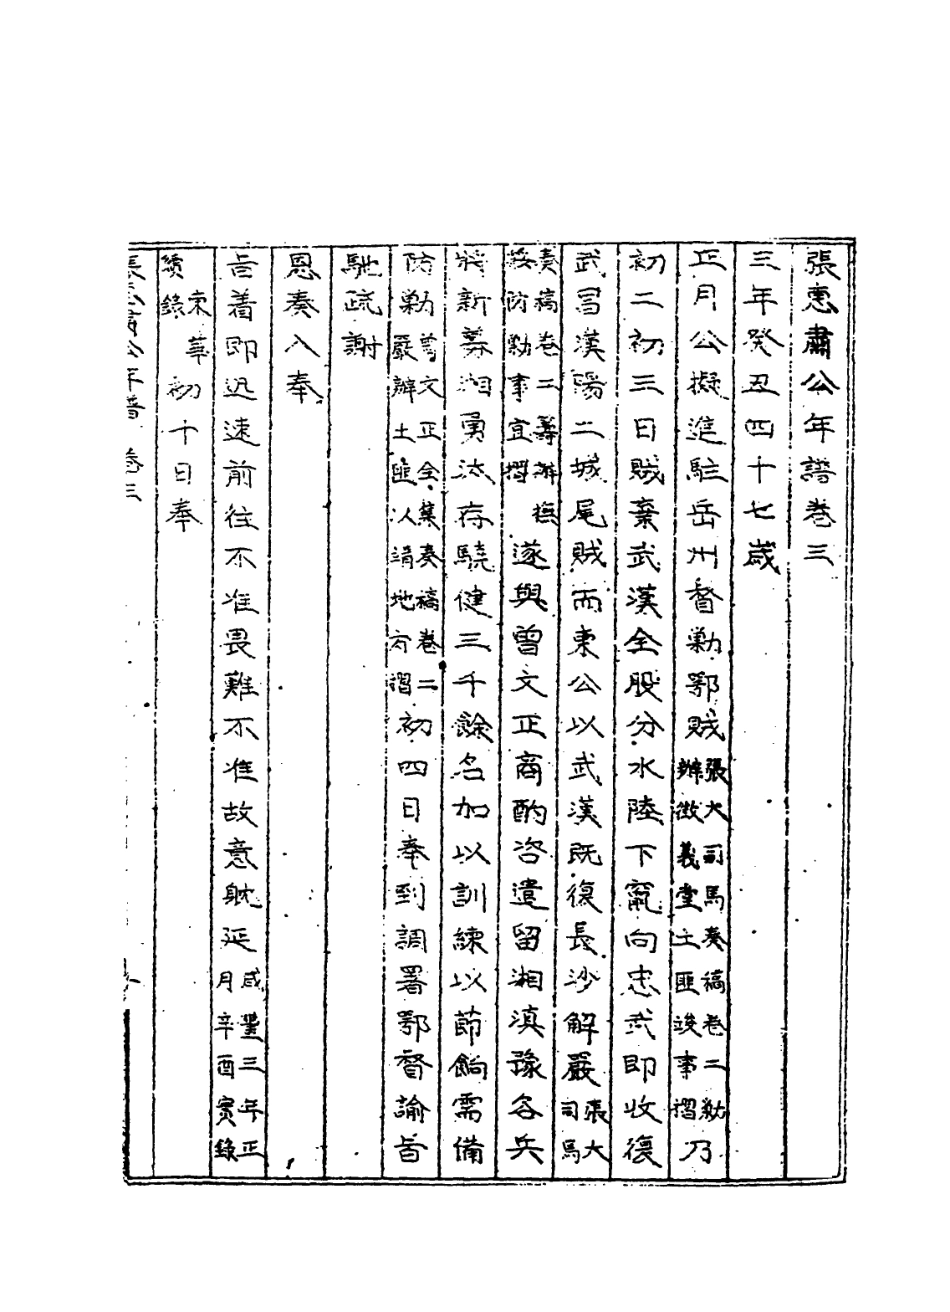 張惠肅公年譜卷三
三年癸丑四十七歲
正月公擬進駐岳州督勦鄂賊張大司馬奏稿卷二勦辦徵義堂土匪竣事摺乃
初二初三日賊棄武漢全股分水陸下竄向忠武即收復
武昌漢陽二城尾賊而東公以武漢既復長沙解嚴張大司馬
奏稿卷二籌辦撫綏防勦事宜摺遂與曾文正商酌咨遣留湘滇豫各兵
將新募湘勇汰存驍健三千餘名加以訓練以節餉需備
防勦曾文正全集奏稿卷二嚴辦土匪以靖地方摺初四日奉到調署鄂督諭旨
馳疏謝
恩奏入奉
旨着即迅速前往不准畏難不准故意耽延咸豐三年正月辛酉實錄
東華續錄初十日奉
張惠肅公年譜 卷三